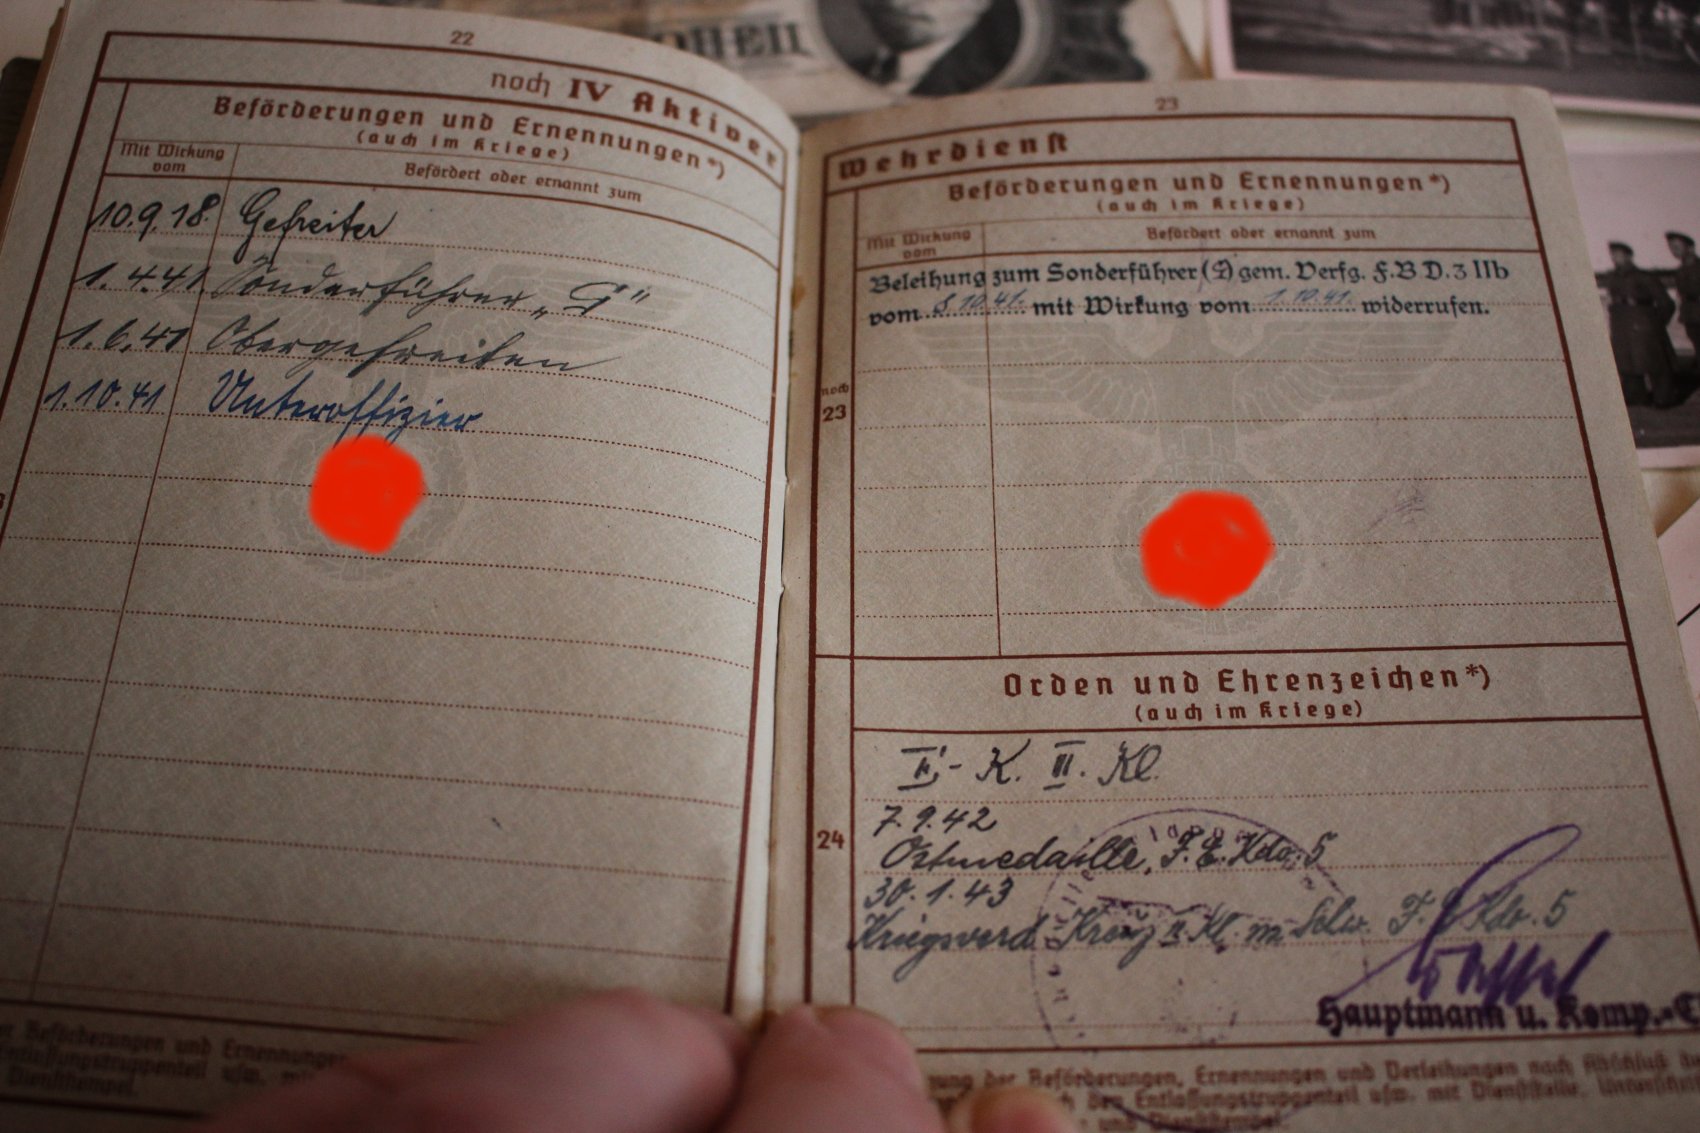 22
noch IV Aktiver
Beförderungen und Ernennungen*)
(auch im Kriege)
Mit Wirkung vom
Befördert oder ernannt zum
10.9.18. Gefreiter
1.4.41 Sonderführer „G"
1.6.41 Obergefreiten
1.10.41 Unteroffizier
Beförderungen und Ernennungen
Dienststempel.
23
Wehrdienst
Beförderungen und Ernennungen*)
(auch im Kriege)
Mit Wirkung vom
Befördert oder ernannt zum
Beleihung zum Sonderführer (G) gem. Verfg. F.B D.3 IIb
vom 8.10.41. mit Wirkung vom 1.10.41. widerrufen.
noch
23
Orden und Ehrenzeichen*)
(auch im Kriege)
24
E.-K. II. Kl.
7.9.42
Ostmedaille, F.E.Kdo. 5
30.1.43
Kriegsverd. Kreuz II. Kl. m. Schw. F.E.Kdo. 5
Hauptmann u. Komp.-
der Beförderungen, Ernennungen und Verleihungen nach Abschluß
den Entlassungstruppenteil usw. mit Dienststelle,
und Dienststempel.